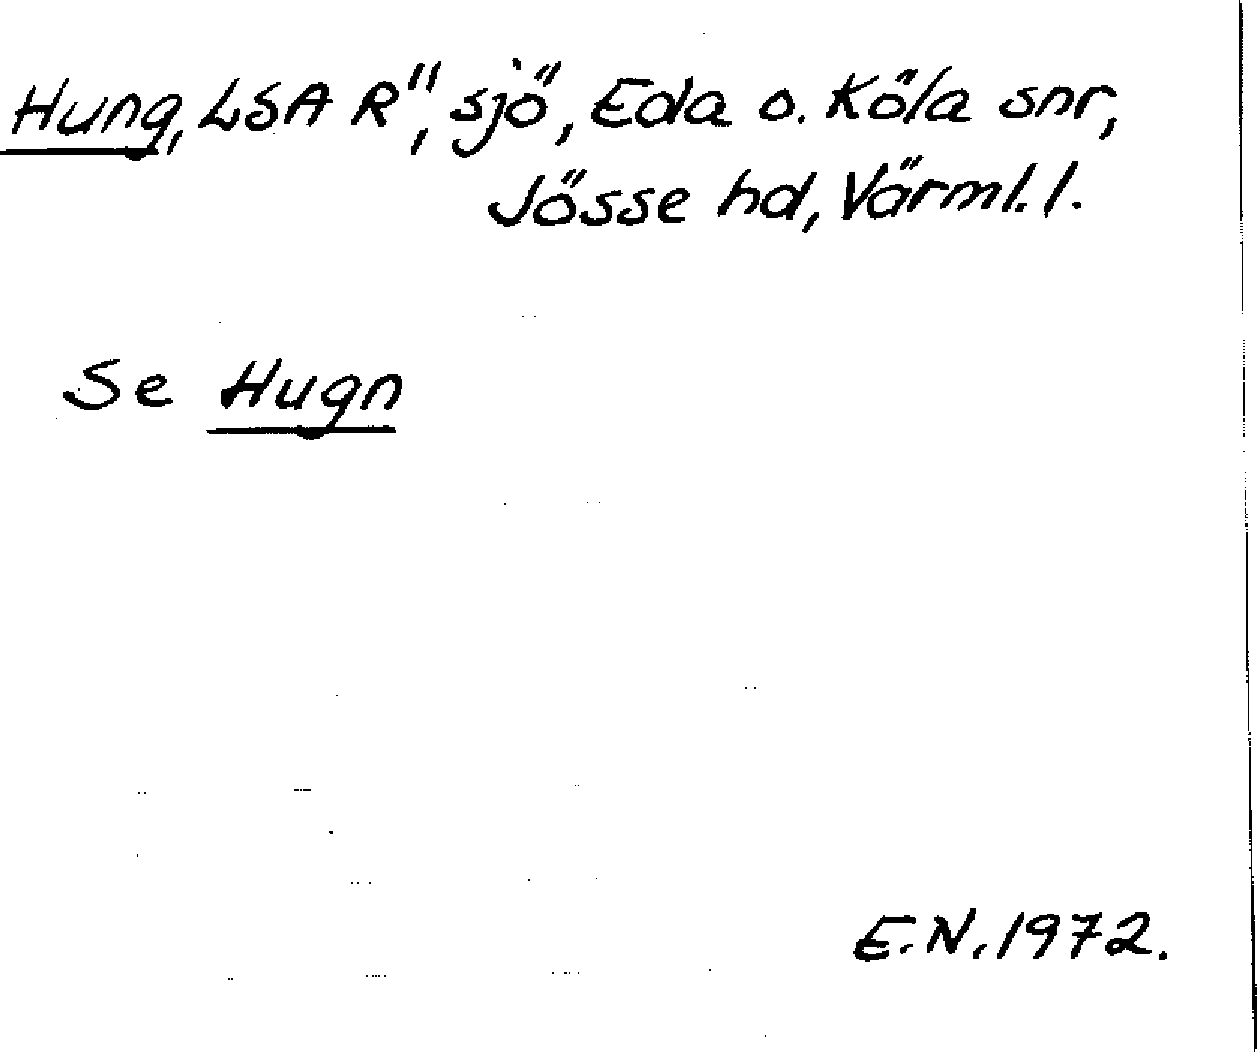 Hung, LSA R", sjö, Eda o. Köla snr,
Jösse hd, Värml. l.
Se Hugn
E.N. 1972.